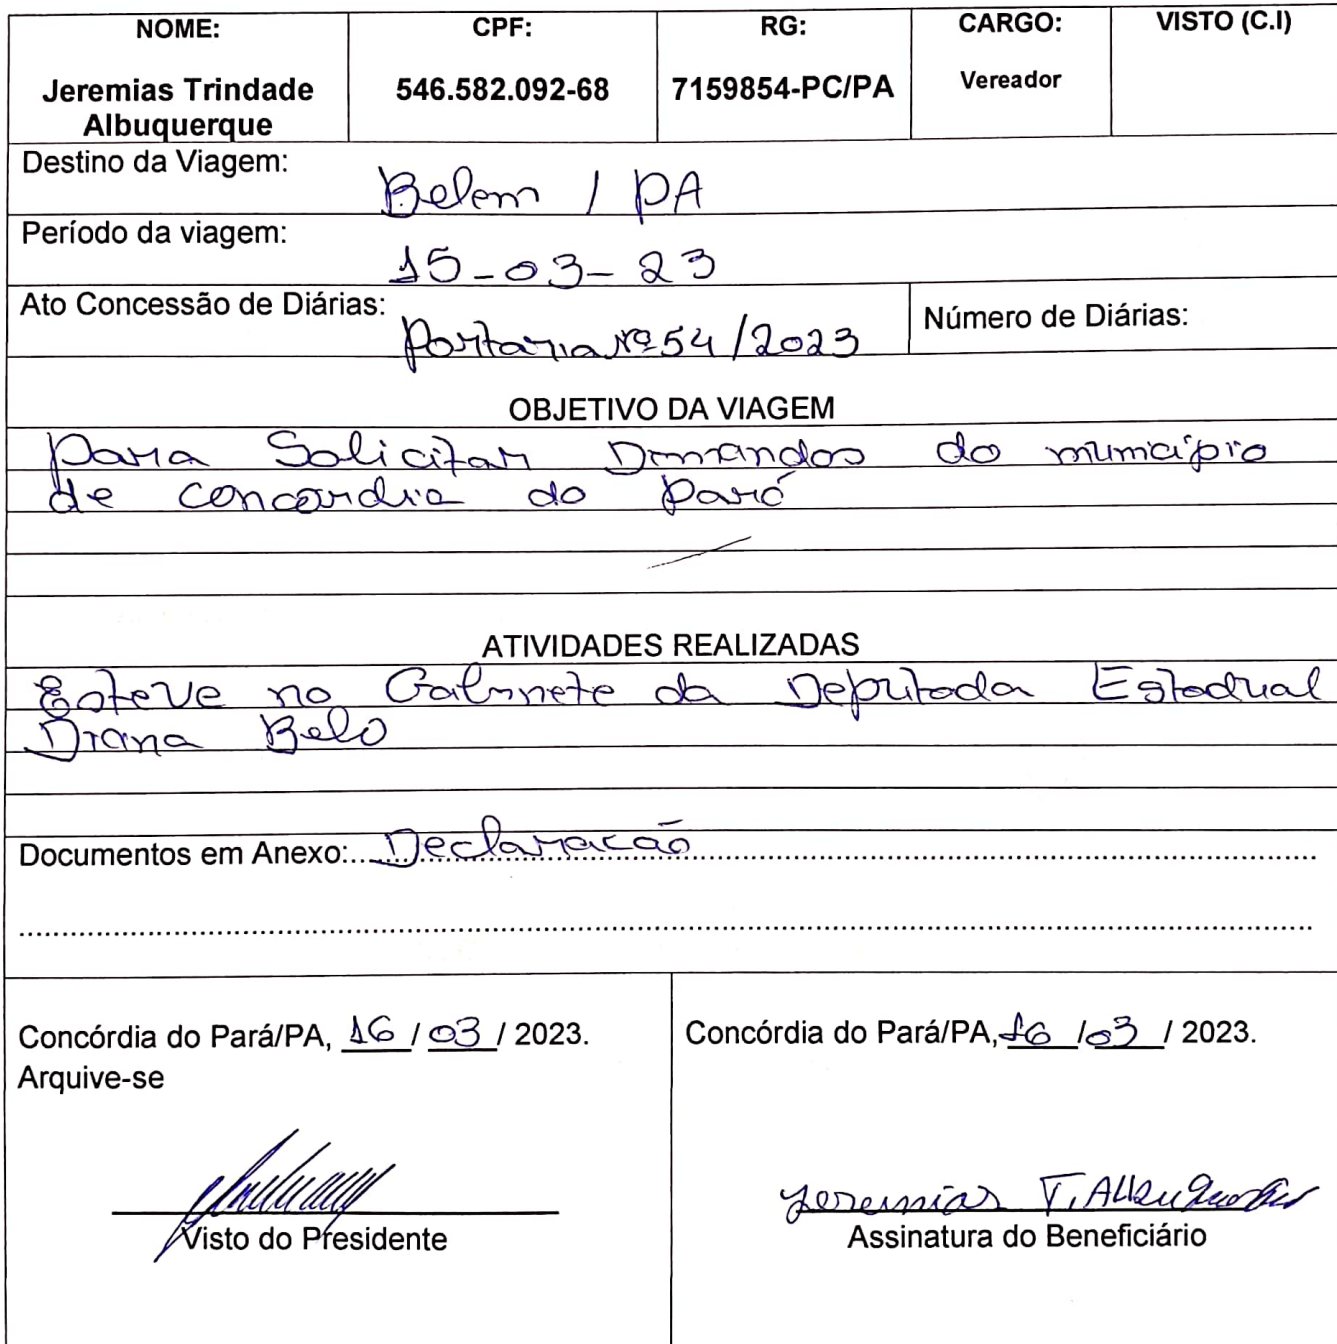 NOME: CPF: RG: CARGO: VISTO (C.I)
Jeremias Trindade 546.582.092-68 7159854-PC/PA Vereador
Albuquerque
Destino da Viagem: Belem / PA
Período da viagem: 15-03-23
Ato Concessão de Diárias: Portaria Nº 54/2023 Número de Diárias:
OBJETIVO DA VIAGEM
Para Solicitar Demandas do município
de concordia do Pará
ATIVIDADES REALIZADAS
Esteve no Gabinete da Deputada Estadual
Diana Belo
Documentos em Anexo: Declaracão
Concórdia do Pará/PA, 16 / 03 / 2023.
Arquive-se
Visto do Presidente
Concórdia do Pará/PA, 16 / 03 / 2023.
Jeremias T. Albuquerque
Assinatura do Beneficiário